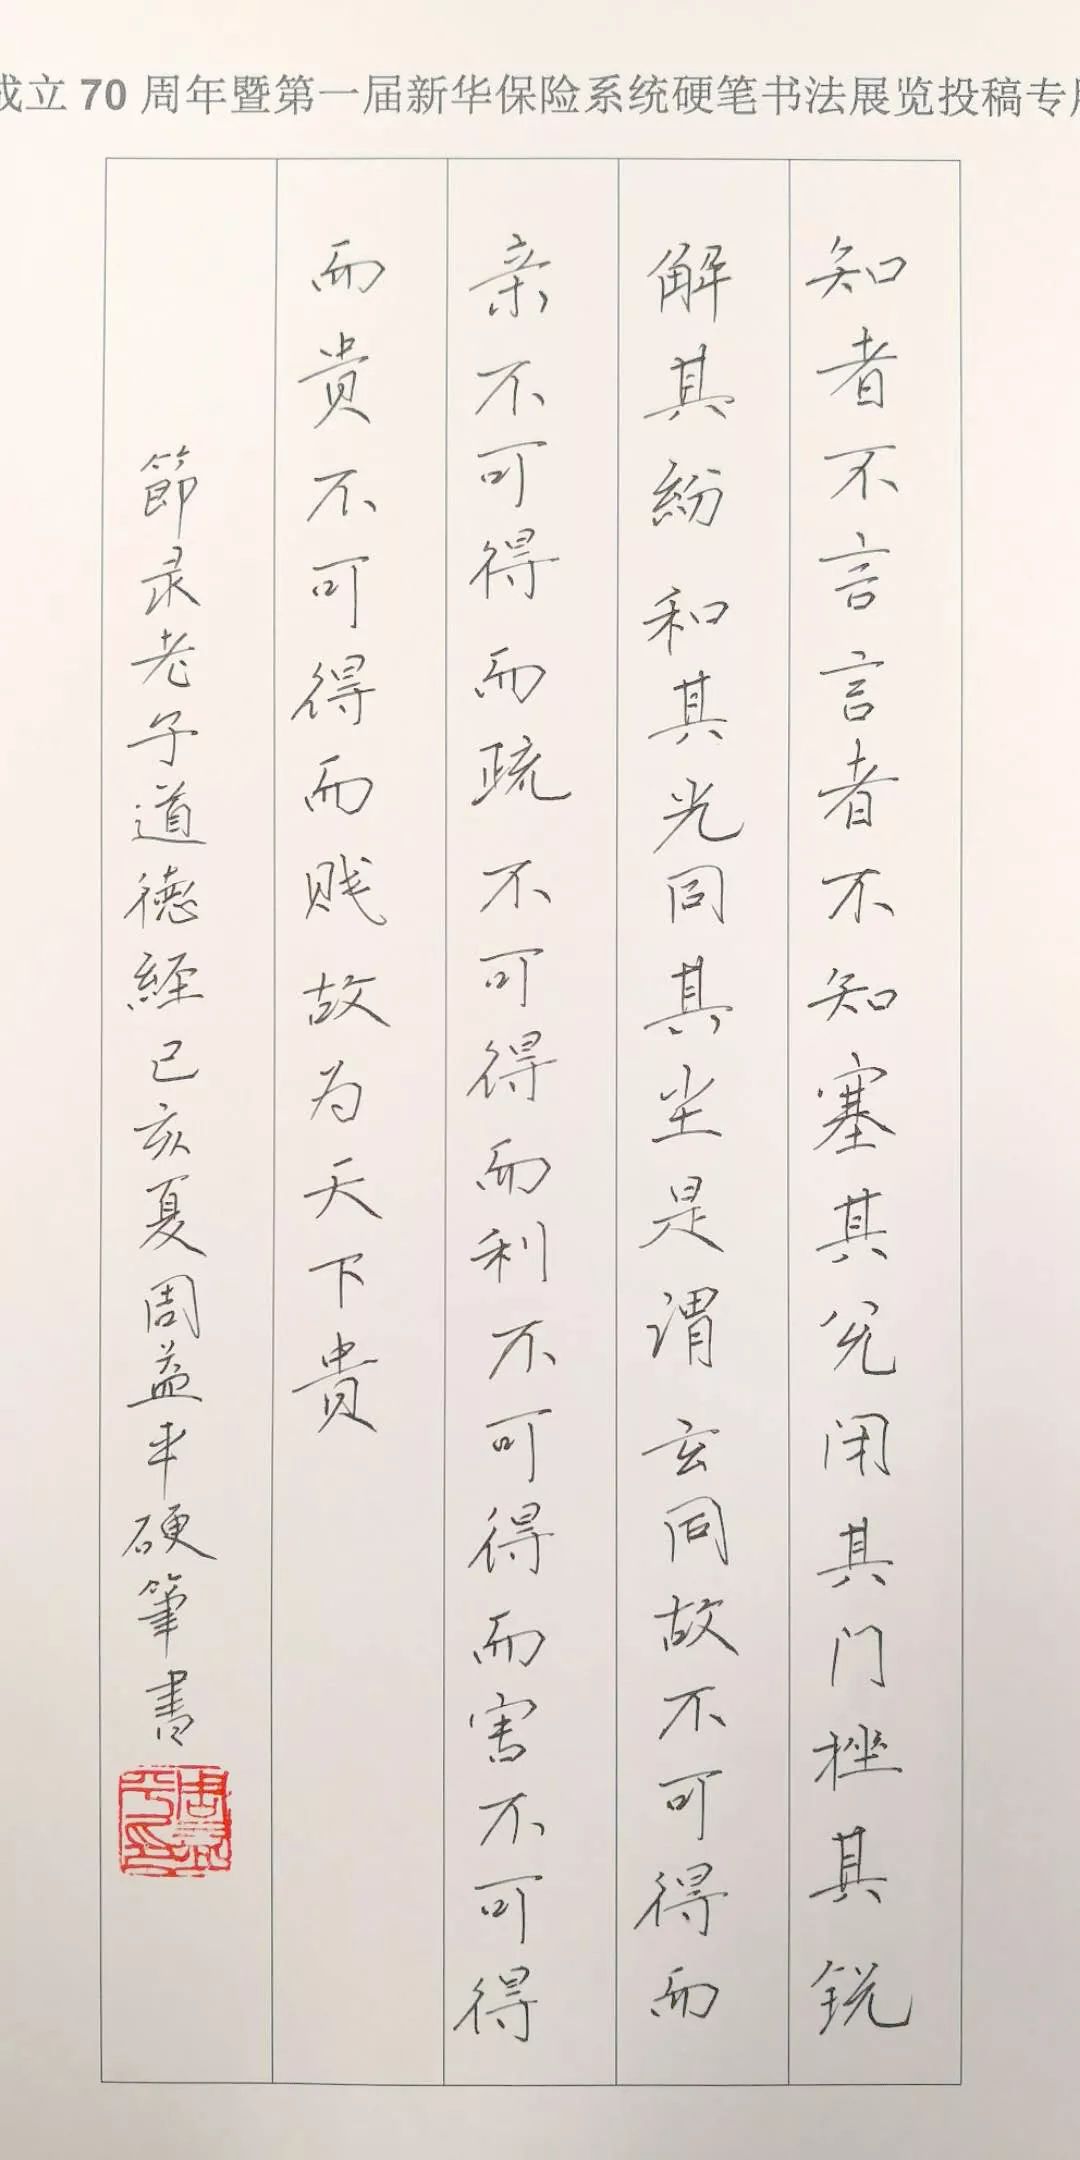 成立70周年暨第一届新华保险系统硬笔书法展览投稿专用
知者不言言者不知塞其兑闭其门挫其锐
解其紛和其光同其尘是谓玄同故不可得而
亲不可得而疏不可得而利不可得而害不可得
而贵不可得而贱故为天下貴
節录老子道德経己亥夏周益平硬筆書
周益平印